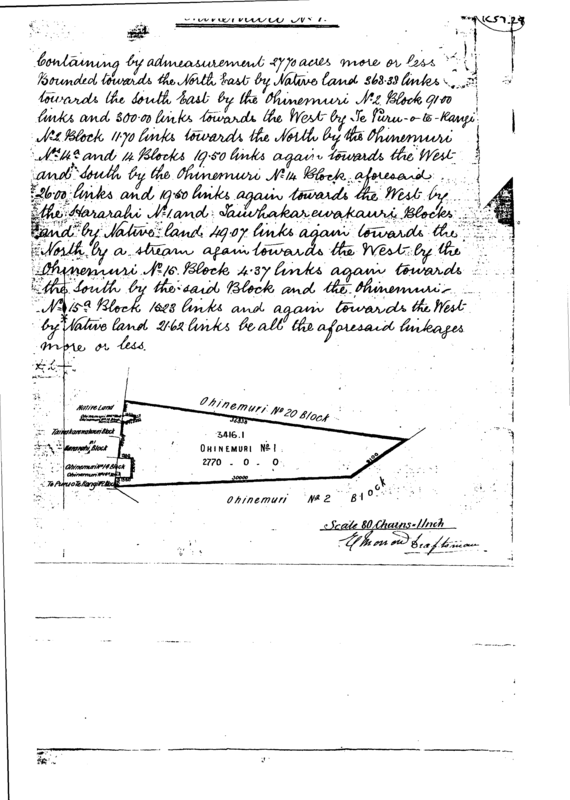 Ohinemuri No 1.
Containing by admeasurement 2770 acres more or less
Bounded towards the North East by Native land 368.38 links
towards the South East by the Ohinemuri No 2 Block 91.00
links and 300.00 links towards the West by Te Puru-o-te-Rangi
No 2 Block 11.70 links towards the North by the Ohinemuri
No 14a and 14 Blocks 19.50 links again towards the West
and South by the Ohinemuri No 14 Block aforesaid
26.00 links and 19.50 links again towards the West by
the Hararahi No 1 and Blocks
and by Native land 49.07 links again towards the
North by a stream again towards the West by the
Ohinemuri No 15 Block 4.37 links again towards
the South by the said Block and the Ohinemuri
No 15a Block links and again towards the West
by Native land 21.62 links be all the aforesaid linkages
more or less.
Native Land
Ohinemuri No 20 Block
3416.1
Block
OHINEMURI No 1
2770 . 0 . 0
Ohinemuri No 14 Block
9100
30000
Ohinemuri No 2 Block
Scale 80 Chains = 1 Inch
Draftsman